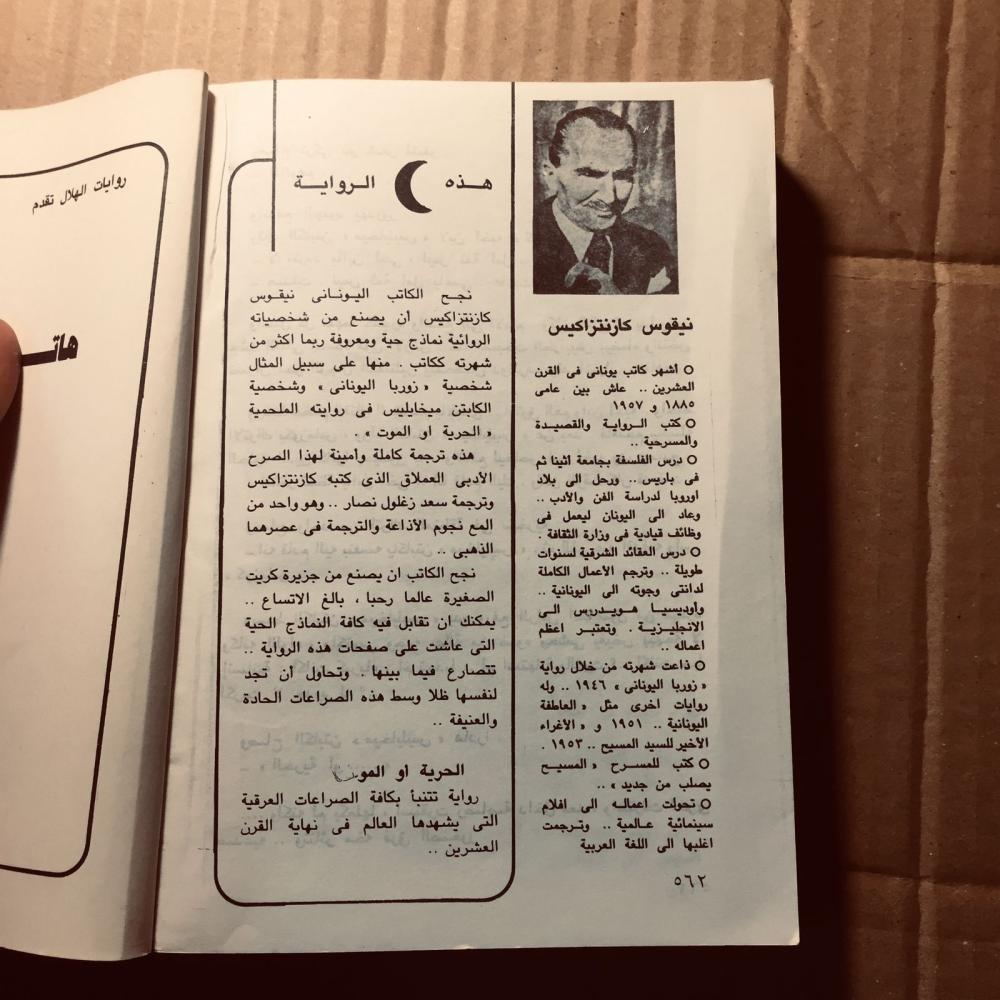 روايات الهلال تقدم
هاتـ
هـذه الـروايـة
نجـح الكاتب اليـونـانى نيقـوس
كازنتزاكيس أن يصنع من شخصياته
الروائية نماذج حية ومعروفة ربما اكثر من
شهرته ككاتب . منها على سبيل المثال
شخصية « زوربا اليونانى » وشخصية
الكابتن ميخايليس فى روايته الملحمية
« الحرية او الموت » .
هذه ترجمة كاملة وأمينة لهذا الصرح
الأدبى العملاق الذى كتبه كازنتزاكيس
وترجمة سعد زغلول نصار .. وهو واحد من
المع نجوم الأذاعة والترجمة فى عصرهما
الذهبى ..
نجح الكاتب ان يصنع من جزيرة كريت
الصغيرة عالما رحبا ، بالغ الاتساع ..
يمكنك ان تقابل فيه كافة النماذج الحية
التى عاشت على صفحات هذه الرواية ..
تتصارع فيما بينها . وتحاول أن تجد
لنفسها ظلا وسط هذه الصراعات الحادة
والعنيفة ..
الحرية او الموت
رواية تتنبأ بكافة الصراعات العرقية
التى يشهدها العالم فى نهاية القرن
العشرين ..
نيقوس كازنتزاكيس
○ أشهر كاتب يونانى فى القرن
العشرين .. عاش بين عامى
١٨٨٥ و ١٩٥٧
○ كتب الـرواية والقصيـدة
والمسرحية ..
○ درس الفلسفة بجامعة اثينا ثم
فى باريس .. ورحل الى بلاد
اوروبا لدراسة الفن والأدب ..
وعاد الى اليونان ليعمل فى
وظائف قيادية فى وزارة الثقافة .
○ درس العقائد الشرقية لسنوات
طويلة .. وترجم الأعمال الكاملة
لدانتى وجوته الى اليونانية ..
وأوديسيـا هـويـدرس الـى
الانجليـزيـة . وتعتبـر اعظم
اعماله ..
○ ذاعت شهرته من خلال رواية
« زوربا اليونانى » ١٩٤٦ .. وله
روايات اخرى مثل « العاطفة
اليونانية .. ١٩٥١ و « الأغراء
الأخير للسيد المسيح .. ١٩٥٣ .
○ كتب للمسـرح « المسيـح
يصلب من جديد » ..
○ تحولت اعمالـه الى افلام
سينمائية عـالمية .. وترجمت
اغلبها الى اللغة العربية
٥٦٢